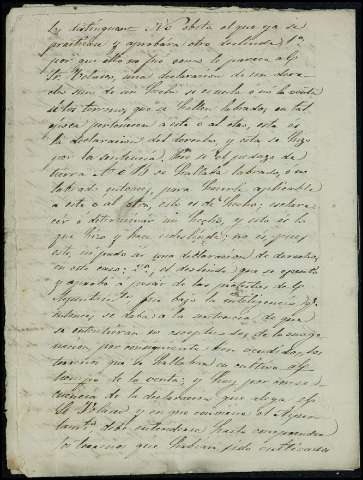 los distinguen. No obsta el que ya se
practicara y aprobara otro deslinde 1º
por que ello no fue como le parece a
Velasco, una declaracion de un dere-
cho sino de un hecho si es suelo o no la venta
de los terrenos, que se hallen labrados, en tal
época pertenecen a este o al otro, esta es
la declaracion del derecho, y esta se hizo
por la sentencia. Pero si el pedazo de
tierra A ó B se hallaba labrado, o no
labrado entonces, para hacerle aplicable
a este o al otro, esto es de hecho: esclare-
cer o determinar un hecho, y esto es lo
que hizo y hace el deslinde: no es, pues
este, infundo una declaracion de derechos,
en este caso: 2º el deslinde que se ejecutó
y aprobó a pesar de las protestas de
fue bajo la inteligencia
entonces, se daba a la sentencia, de que
se entendieran no exceptuados, de la enage-
nacion, por consiguiente bien vendidos, los
terrenos que se hallaban en cultivo al
tiempo de la venta; y hoy, por conse-
cuencia de la declaracion que alega
Velasco y en que conviene el
debe entenderse hasta comprender
los terrenos que habian sido cultivados